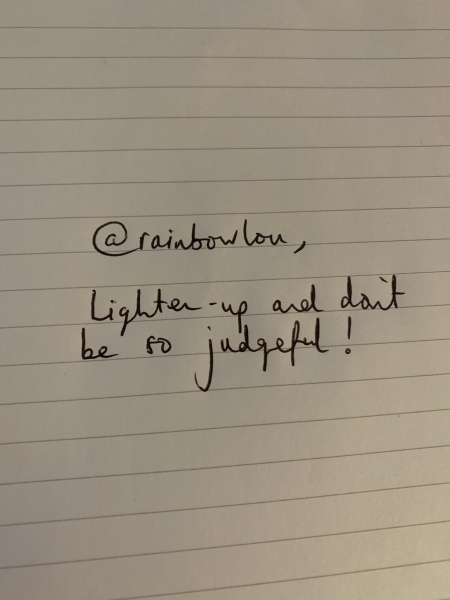 @rainbowlou,
Lighten-up and don't
be so judgeful!